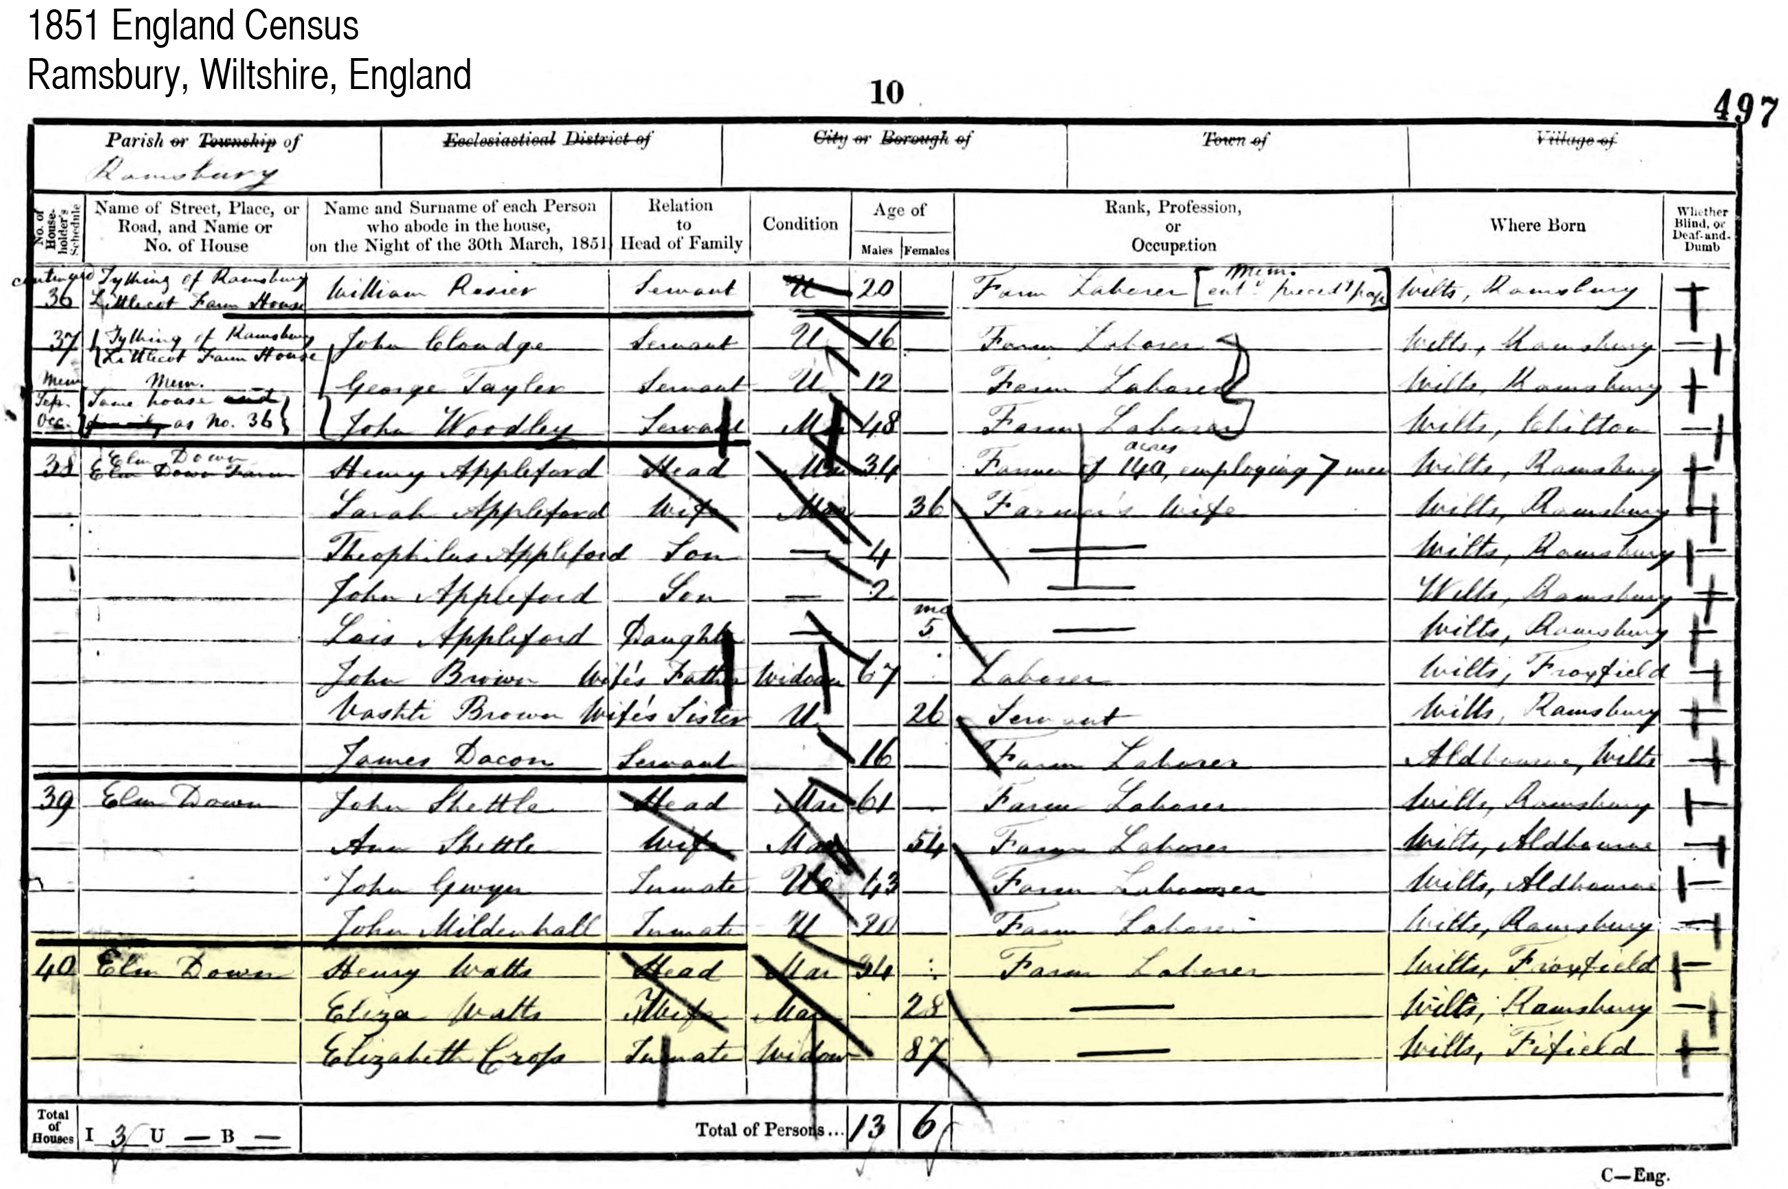 1851 England Census
Ramsbury, Wiltshire, England
10
497
Parish or Township of Ecclesiastical District of City or Borough of Town of Village of
Ramsbury
No. of Householder's Schedule Name of Street, Place, or Road, and Name or No. of House Name and Surname of each Person who abode in the house, on the Night of the 30th March, 1851 Relation to Head of Family Condition Age of Males Females Rank, Profession, or Occupation Where Born Whether Blind, or Deaf-and-Dumb
36 Tything of Ramsbury Littlecot Farm House William Rosier Servant U 20 Farm Laborer [Mem. ent^d preced^g page] Wilts, Ramsbury
37 Tything of Ramsbury Littlecot Farm House John Claudge Servant U 16 Farm Laborer Wilts, Ramsbury
Mem. Mem. George Tayler Servant U 12 Farm Laborer Wilts, Ramsbury
Sep. Occ. Same house and family as No. 36 John Woodley Servant Mar 48 Farm Laborer Wilts, Chilton
38 Elm Down Elm Down Farm Henry Appleford Head Mar 34 Farmer of 140 acres, employing 7 men Wilts, Ramsbury
Sarah Appleford Wife Mar 36 Farmer's Wife Wilts, Ramsbury
Theophilus Appleford Son — 4 — Wilts, Ramsbury
John Appleford Son — 2 — Wilts, Ramsbury
Lois Appleford Daughter — mo 5 — Wilts, Ramsbury
John Brown Wife's Father Widower 67 Laborer Wilts, Froxfield
Vashti Brown Wife's Sister U 26 Servant Wilts, Ramsbury
James Dacon Servant 16 Farm Laborer Aldbourne, Wilts
39 Elm Down John Shettle Head Mar 61 Farm Laborer Wilts, Ramsbury
Ann Shettle Wife Mar 54 Farm Laborer Wilts, Aldbourne
John Gwyer Inmate U 43 Farm Labourer Wilts, Aldbourne
John Mildenhall Inmate U Farm Laborer Wilts, Ramsbury
40 Elm Down Henry Watts Head Mar 34 Farm Laborer Wilts, Froxfield
Eliza Watts Wife Mar 28 — Wilts, Ramsbury
Elizabeth Crofs Inmate Widow 87 — Wilts, Fifield
Total of Houses I 3 U — B — Total of Persons... 13 6
C—Eng.